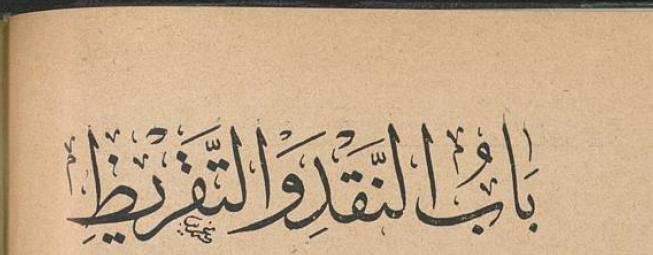 بَابُ النَّقْدِ وَالتَّقْرِيظِ